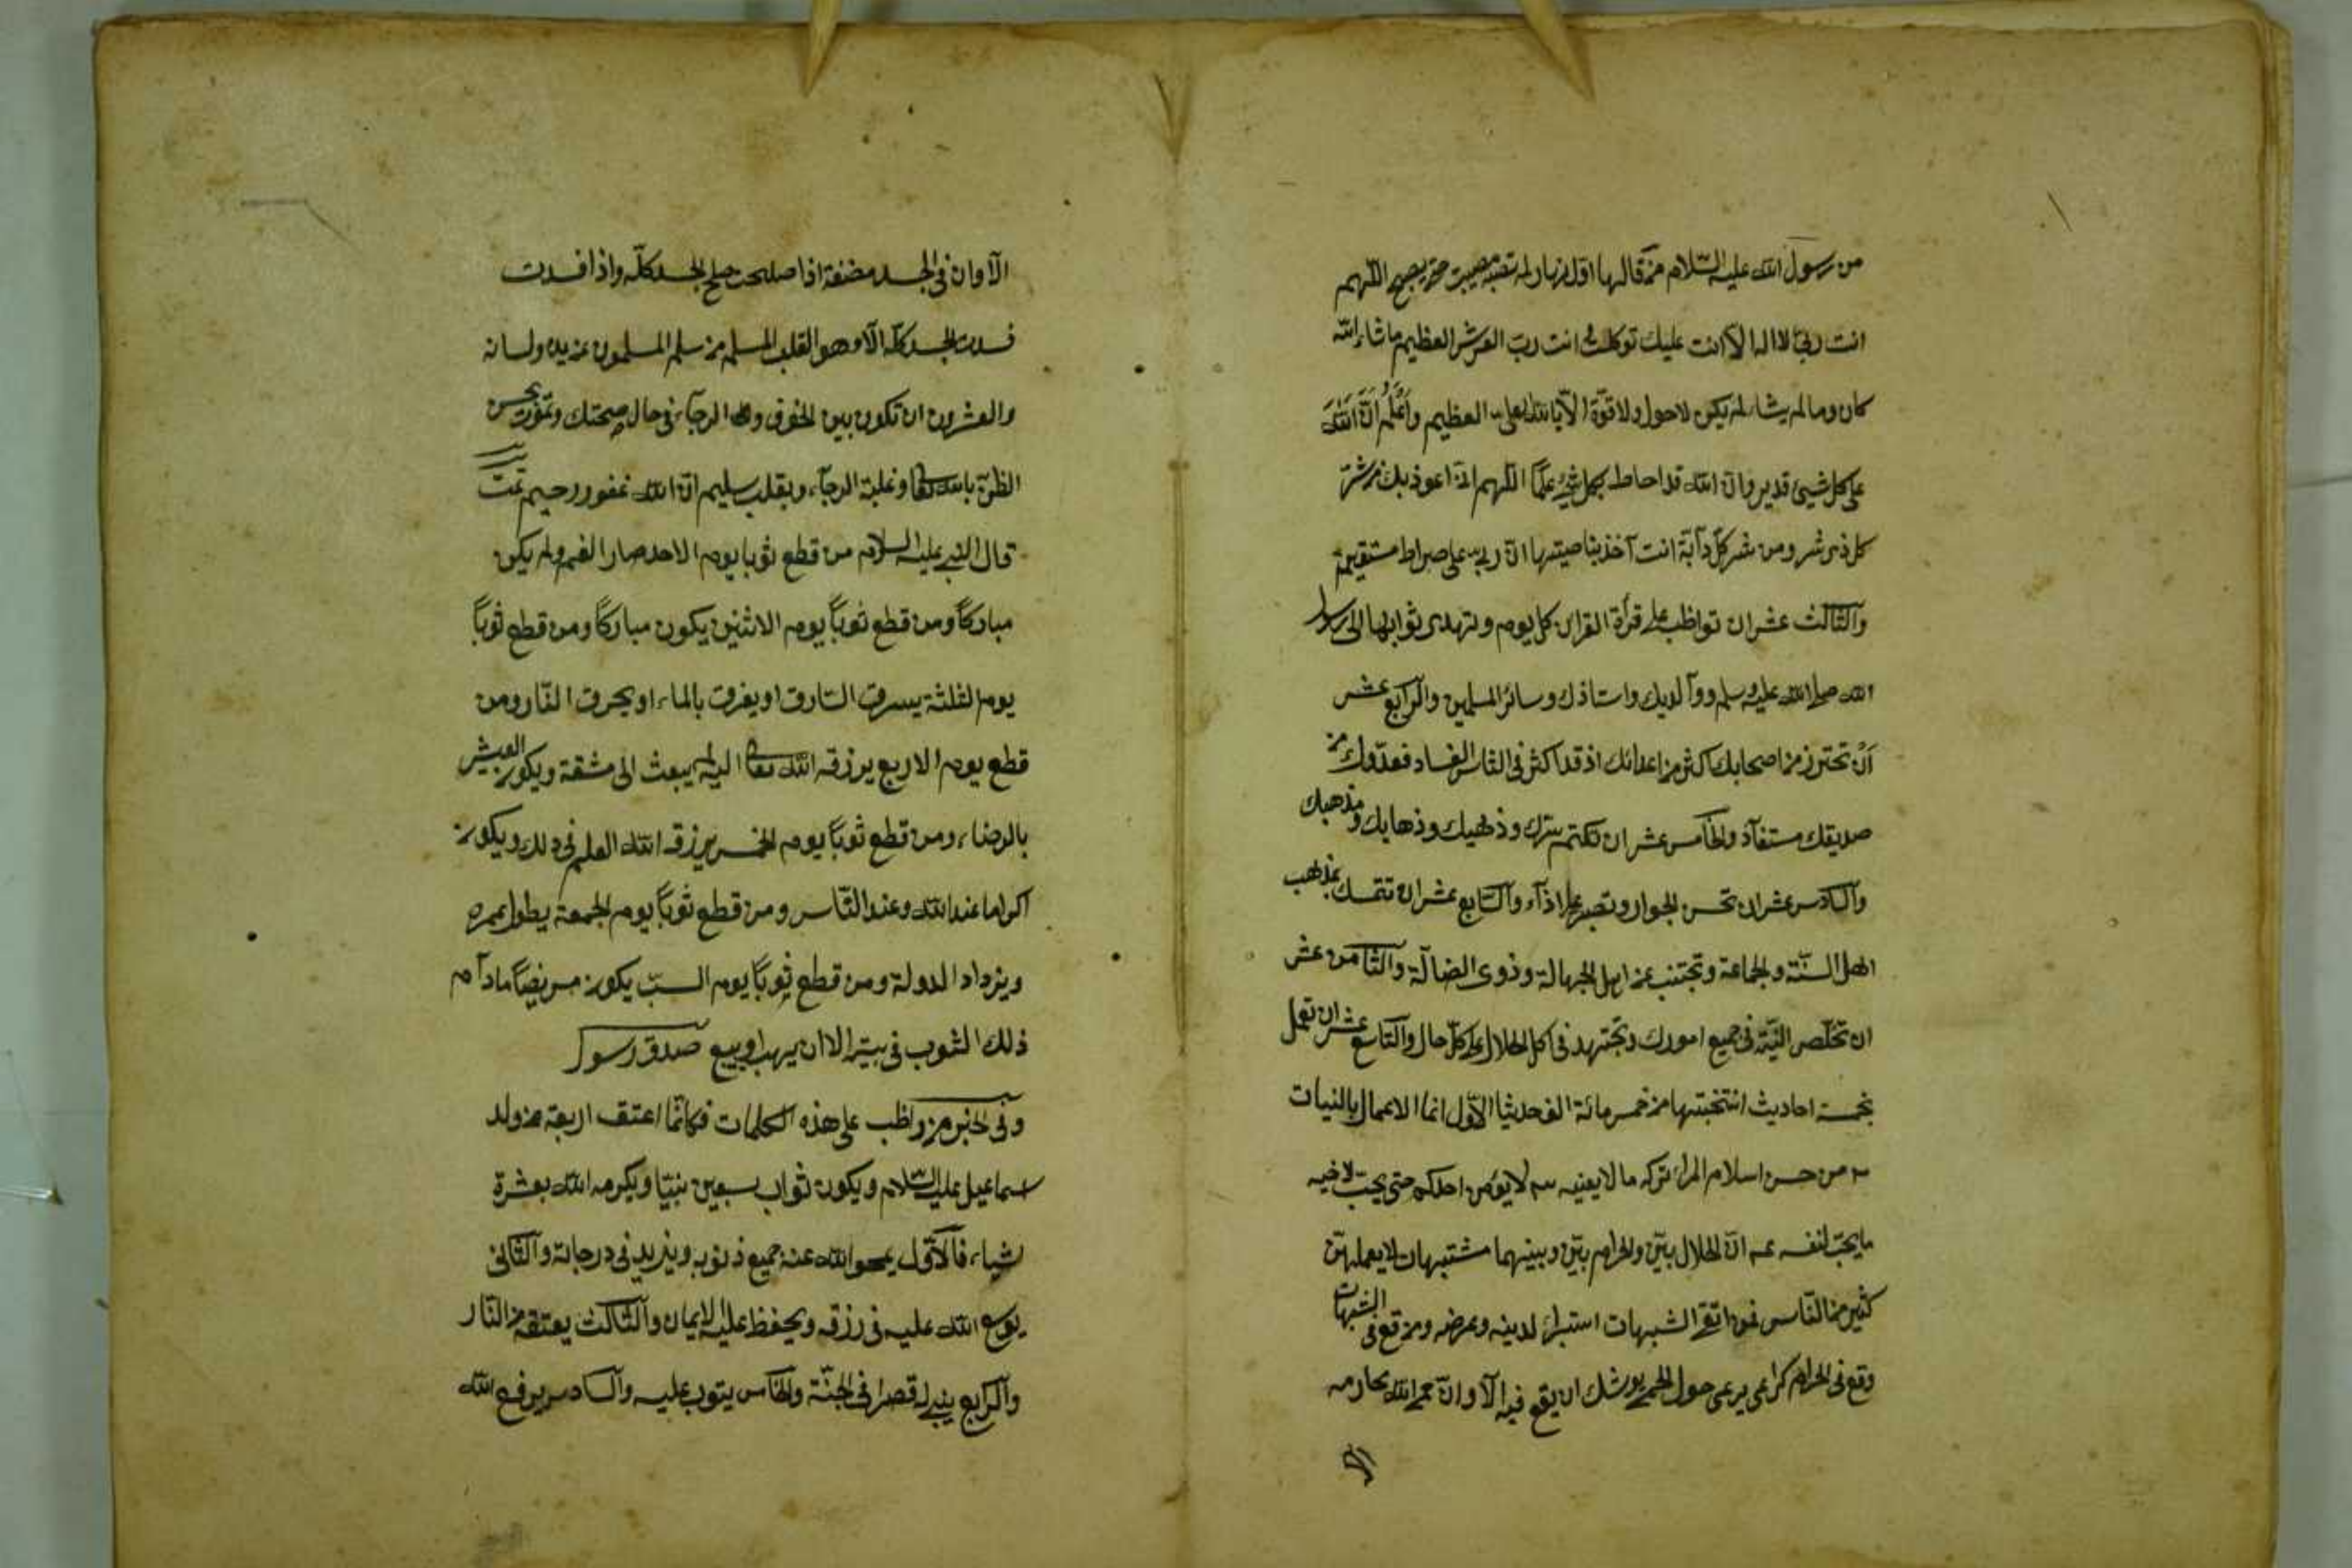 من رسول الله عليه السلام من قالها اول نهار لم تصبه مصيبة حتى يصبح اللهم
انت ربى لا اله الا انت عليك توكلت انت رب العرش العظيم ما شاء الله
كان وما لم يشاء لم يكن لا حول ولا قوة الا بالله العلى العظيم واعلم ان الله
على كل شيئ قدير وان الله قد احاط بكل شيئ علما اللهم انى اعوذ بك من شر
كل ذى شر ومن شر كل دآبة انت آخذ بناصيتها ان ربى على صراط مستقيم
والثالث عشر ان تواظب على قرأة القران كل يوم وتهدى ثوابها الى رسول
الله صلى الله عليه وسلم ووآلديك واستاذك وسائر المسلمين والرابع عشر
ان تحترز من اصحابك اكثر من اعدائك اذ قد اكثر فى الناس الفساد فعدوك من
صديقك مستفاد والخامس عشر ان تكتم سرك وذهبك وذهابك ومذهبك
والسادس عشر ان تحسن الجوار وتصبر على اذآء والسابع عشر ان تتمسك بمذهب
اهل السنة والجماعة وتجتنب عن اهل الجهالة وذوى الضالة والثامن عشر
ان تخلص النية فى جميع امورك وتجتهد فى اكل الحلال على كل حال والتاسع عشر ان تعمل
بخمسة احاديث انتخبتها من خمس مائة الف حديثا الاول انما الاعمال بالنيات
٢ من حسن اسلام المرء تركه ما لا يعنيه ٣ لا يؤمن احدكم حتى يحب لاخيه
ما يحب لنفسه ٤ ان الحلال بين والحرام بين وبينهما مشتبهات لا يعلمهن
كثير من الناس فمن اتقى الشبهات استبراء لدينه وعرضه ومن وقع فى الشبهات
وقع فى الحرام كراعى يرعى حول الحمى يوشك ان يقع فيه الا وان حمى الله محارمه
الا وان فى الجسد مضغة اذا صلحت صلح الجسد كله واذا فسدت
فسدت الجسد كله الا وهو القلب المسلم من سلم المسلمون من يده ولسانه
والعشرون ان تكون بين الخوف والرجآء فى حال صحتك وتموت بحسن
الظن بالله تعالى وغلبة الرجآء وبقلب سليم ان الله غفور رحيم تمت
قال النبى عليه السلام من قطع ثوبا يوم الاحد صار الغم ولم يكن
مباركا ومن قطع ثوبا يوم الاثنين يكون مباركا ومن قطع ثوبا
يوم الثلثة يسرق السارق او يغرق بالماء او يحرق النار ومن
قطع يوم الاربع يرزقه الله تعالى اليه لم يبعث الى مشقة ويكون العيش
بالرضاء ومن قطع ثوبا يوم الخمس يرزقه الله العلم فى ذلك ويكون
اكراما عند الله وعند الناس ومن قطع ثوبا يوم الجمعة يطول عمره
ويزداد الدولة ومن قطع ثوبا يوم السبت يكون مريضا مادآم
ذلك الثوب فى بيته الا ان يهب او يبيع صدق رسول
وفى الخبر من واظب على هذه الكلمات فكانما اعتق اربعة من ولد
اسماعيل عليه السلام ويكون ثواب سبعين نبيا ويكرمه الله بعشرة
اشياء فالاول يمحو الله عنه جميع ذنوبه ويزيد فى درجاته والثانى
يوسع الله عليه فى رزقه ويحفظ عليه الايمان والثالث يعتقه من النار
والرابع يبنى له قصرا فى الجنة والخامس يتوب عليه والسادس يرفع الله